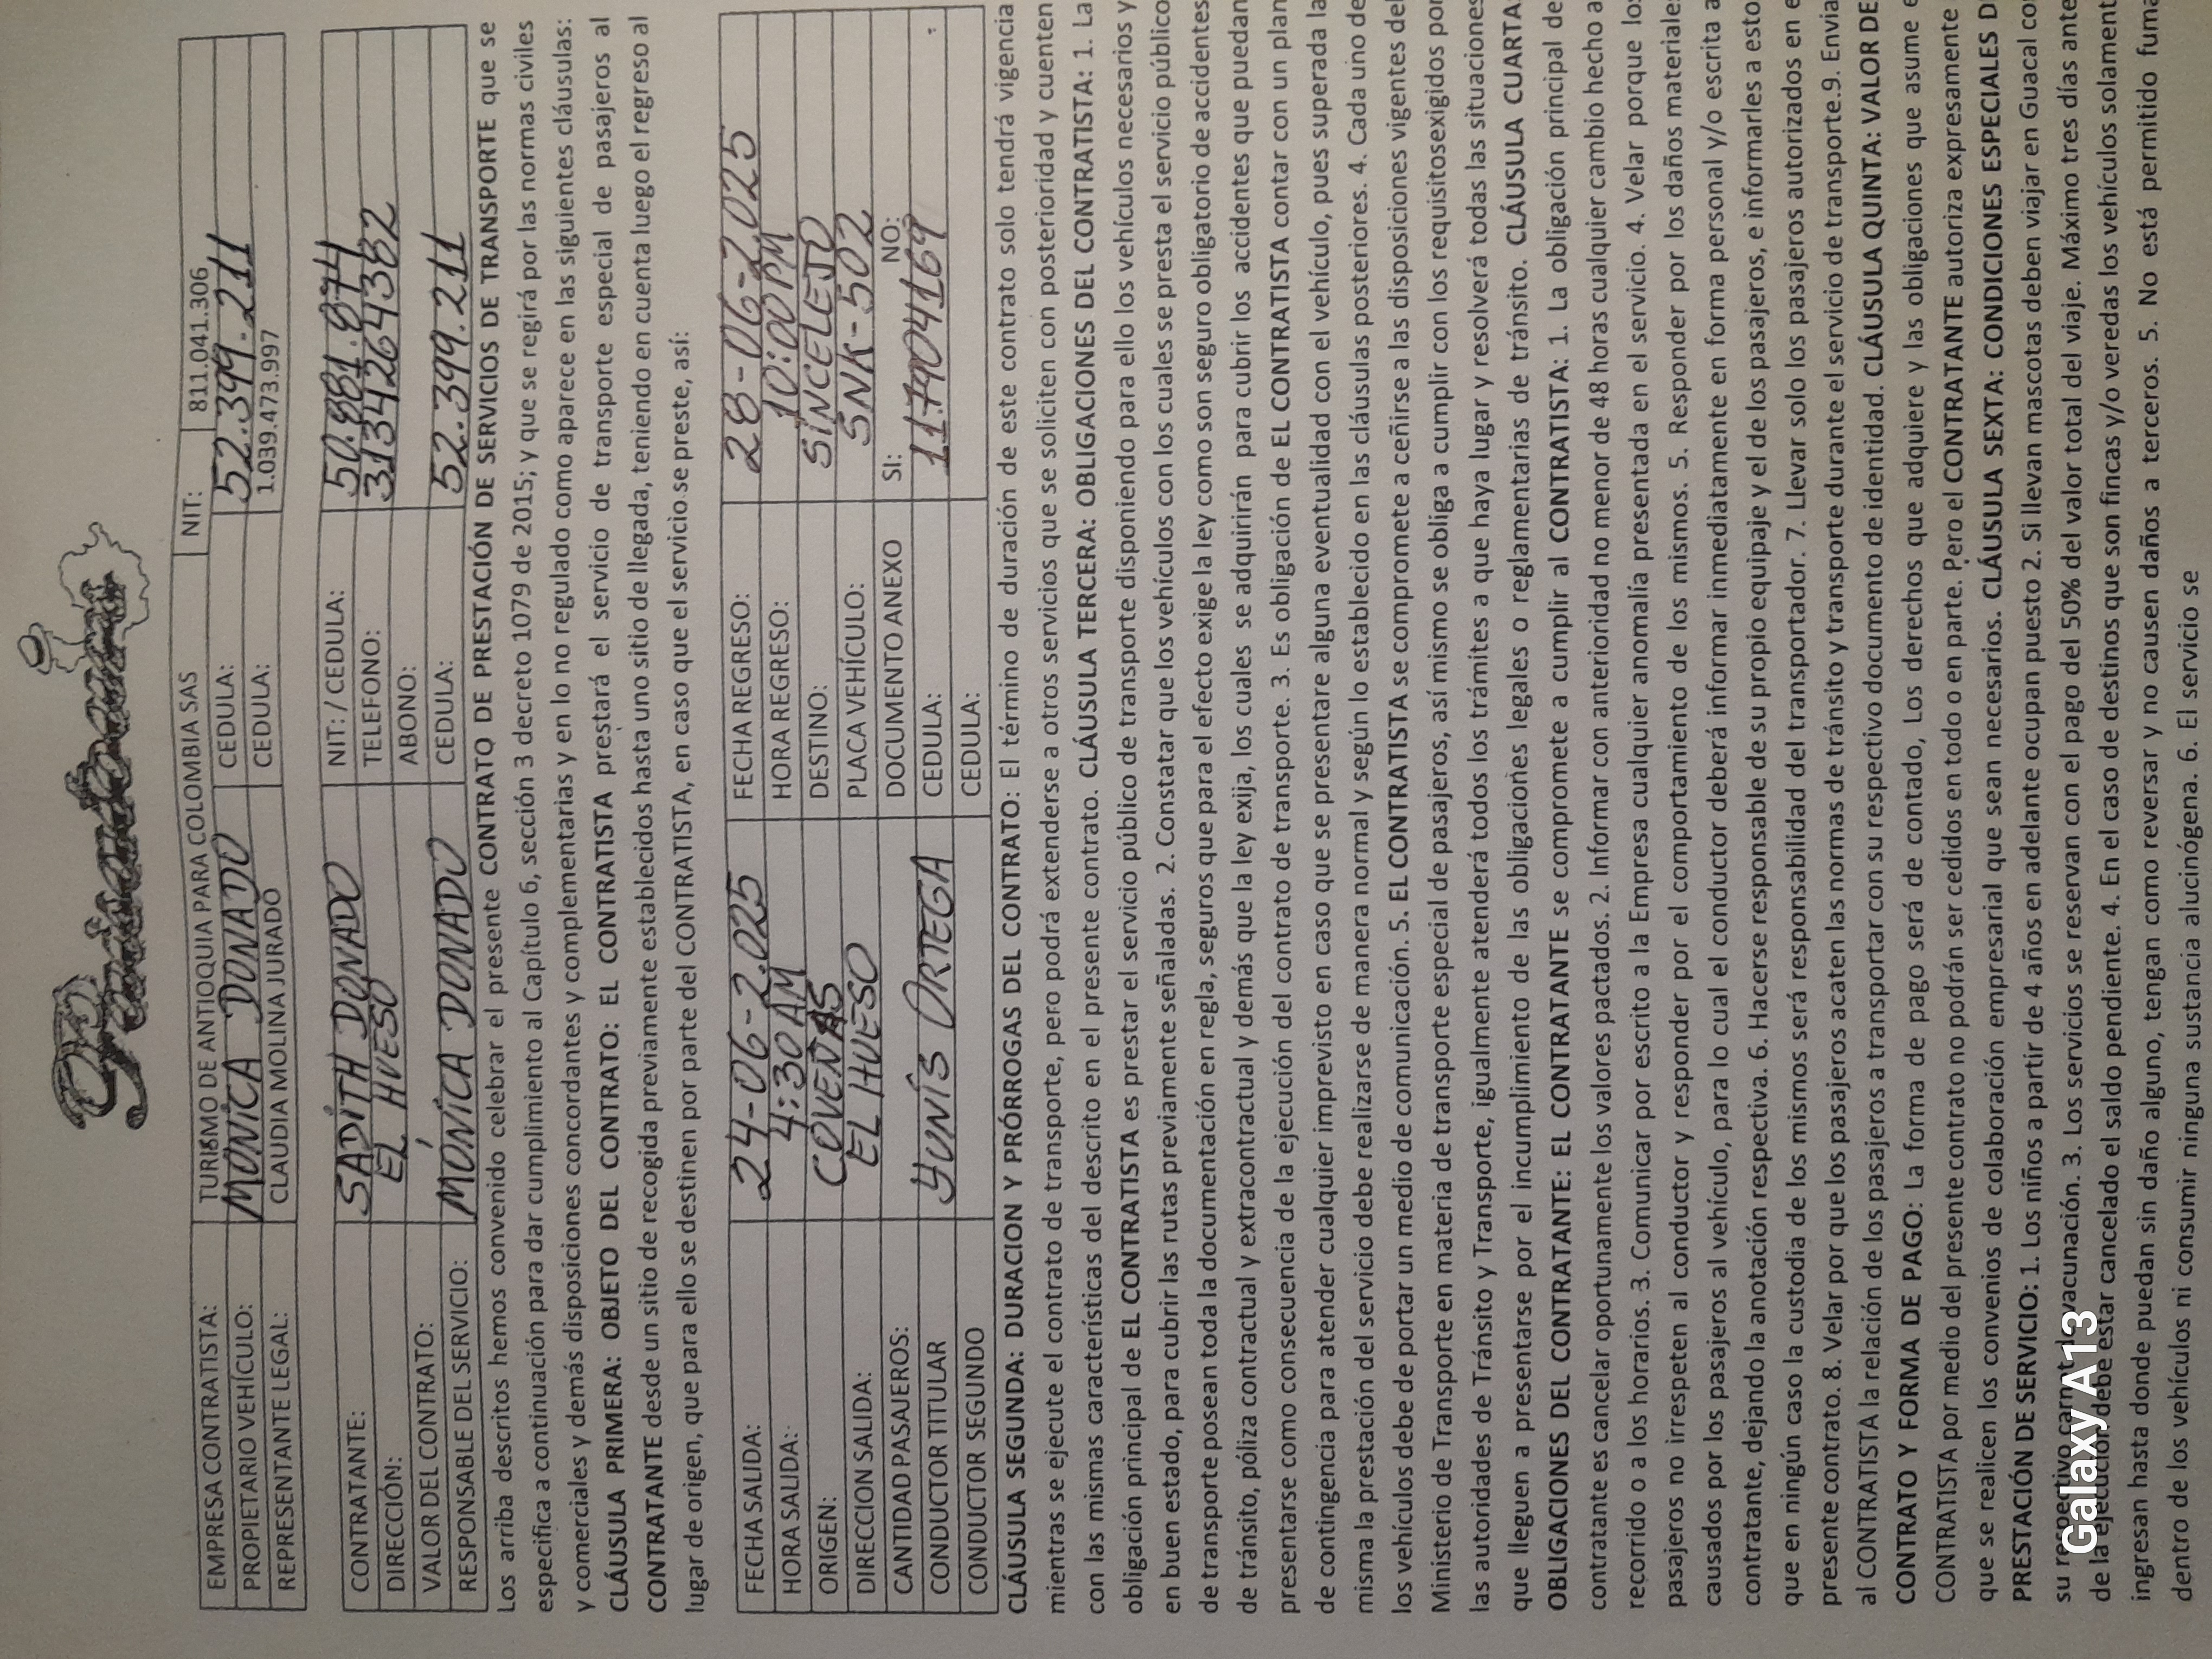 EMPRESA CONTRATISTA: TURISMO DE ANTIOQUIA PARA COLOMBIA SAS NIT: 811.041.306
PROPIETARIO VEHÍCULO: MONICA DONADO CEDULA: 52.399.211
REPRESENTANTE LEGAL: CLAUDIA MOLINA JURADO CEDULA: 1.039.473.997
CONTRATANTE: SADITH DONADO NIT: / CEDULA: 50.981.974
DIRECCIÓN: EL HUESO TELEFONO: 3134264382
VALOR DEL CONTRATO: ABONO:
RESPONSABLE DEL SERVICIO: MONICA DONADO CEDULA: 52.399.211
Los arriba descritos hemos convenido celebrar el presente CONTRATO DE PRESTACIÓN DE SERVICIOS DE TRANSPORTE que se
especifica a continuación para dar cumplimiento al Capítulo 6, sección 3 decreto 1079 de 2015; y que se regirá por las normas civiles
y comerciales y demás disposiciones concordantes y complementarias y en lo no regulado como aparece en las siguientes cláusulas:
CLÁUSULA PRIMERA: OBJETO DEL CONTRATO: EL CONTRATISTA prestará el servicio de transporte especial de pasajeros al
CONTRATANTE desde un sitio de recogida previamente establecidos hasta uno sitio de llegada, teniendo en cuenta luego el regreso al
lugar de origen, que para ello se destinen por parte del CONTRATISTA, en caso que el servicio se preste, así:
FECHA SALIDA: 24-06-2.025 FECHA REGRESO: 28-06-2.025
HORA SALIDA: 4:30 AM HORA REGRESO: 10:00 PM
ORIGEN: COVEÑAS DESTINO: SINCELEJO
DIRECCION SALIDA: EL HUESO PLACA VEHÍCULO: SNK-502
CANTIDAD PASAJEROS: DOCUMENTO ANEXO SI: NO:
CONDUCTOR TITULAR YUNIS ORTEGA CEDULA: 11.7904169
CONDUCTOR SEGUNDO CEDULA:
CLÁUSULA SEGUNDA: DURACION Y PRÓRROGAS DEL CONTRATO: El término de duración de este contrato solo tendrá vigencia
mientras se ejecute el contrato de transporte, pero podrá extenderse a otros servicios que se soliciten con posterioridad y cuenten
con las mismas características del descrito en el presente contrato. CLÁUSULA TERCERA: OBLIGACIONES DEL CONTRATISTA: 1. La
obligación principal de EL CONTRATISTA es prestar el servicio público de transporte disponiendo para ello los vehículos necesarios y
en buen estado, para cubrir las rutas previamente señaladas. 2. Constatar que los vehículos con los cuales se presta el servicio público
de transporte posean toda la documentación en regla, seguros que para el efecto exige la ley como son seguro obligatorio de accidentes
de tránsito, póliza contractual y extracontractual y demás que la ley exija, los cuales se adquirirán para cubrir los accidentes que puedan
presentarse como consecuencia de la ejecución del contrato de transporte. 3. Es obligación de EL CONTRATISTA contar con un plan
de contingencia para atender cualquier imprevisto en caso que se presentare alguna eventualidad con el vehículo, pues superada la
misma la prestación del servicio debe realizarse de manera normal y según lo establecido en las cláusulas posteriores. 4. Cada uno de
los vehículos debe de portar un medio de comunicación. 5. EL CONTRATISTA se compromete a ceñirse a las disposiciones vigentes del
Ministerio de Transporte en materia de transporte especial de pasajeros, así mismo se obliga a cumplir con los requisitosexigidos por
las autoridades de Tránsito y Transporte, igualmente atenderá todos los trámites a que haya lugar y resolverá todas las situaciones
que lleguen a presentarse por el incumplimiento de las obligaciones legales o reglamentarias de tránsito. CLÁUSULA CUARTA:
OBLIGACIONES DEL CONTRATANTE: EL CONTRATANTE se compromete a cumplir al CONTRATISTA: 1. La obligación principal de
contratante es cancelar oportunamente los valores pactados. 2. Informar con anterioridad no menor de 48 horas cualquier cambio hecho a
recorrido o a los horarios. 3. Comunicar por escrito a la Empresa cualquier anomalía presentada en el servicio. 4. Velar porque los
pasajeros no irrespeten al conductor y responder por el comportamiento de los mismos. 5. Responder por los daños materiale
causados por los pasajeros al vehículo, para lo cual el conductor deberá informar inmediatamente en forma personal y/o escrita a
contratante, dejando la anotación respectiva. 6. Hacerse responsable de su propio equipaje y el de los pasajeros, e informarles a esto
que en ningún caso la custodia de los mismos será responsabilidad del transportador. 7. Llevar solo los pasajeros autorizados en e
presente contrato. 8. Velar por que los pasajeros acaten las normas de tránsito y transporte durante el servicio de transporte.9. Envia
al CONTRATISTA la relación de los pasajeros a transportar con su respectivo documento de identidad. CLÁUSULA QUINTA: VALOR DE
CONTRATO Y FORMA DE PAGO: La forma de pago será de contado, Los derechos que adquiere y las obligaciones que asume e
CONTRATISTA por medio del presente contrato no podrán ser cedidos en todo o en parte. Pero el CONTRATANTE autoriza expresamente
que se realicen los convenios de colaboración empresarial que sean necesarios. CLÁUSULA SEXTA: CONDICIONES ESPECIALES D
PRESTACIÓN DE SERVICIO: 1. Los niños a partir de 4 años en adelante ocupan puesto 2. Si llevan mascotas deben viajar en Guacal co
su respectivo carnet vacunación. 3. Los servicios se reservan con el pago del 50% del valor total del viaje. Máximo tres días ante
de la ejecución debe estar cancelado el saldo pendiente. 4. En el caso de destinos que son fincas y/o veredas los vehículos solament
ingresan hasta donde puedan sin daño alguno, tengan como reversar y no causen daños a terceros. 5. No está permitido fuma
dentro de los vehículos ni consumir ninguna sustancia alucinógena. 6. El servicio se
Galaxy A13